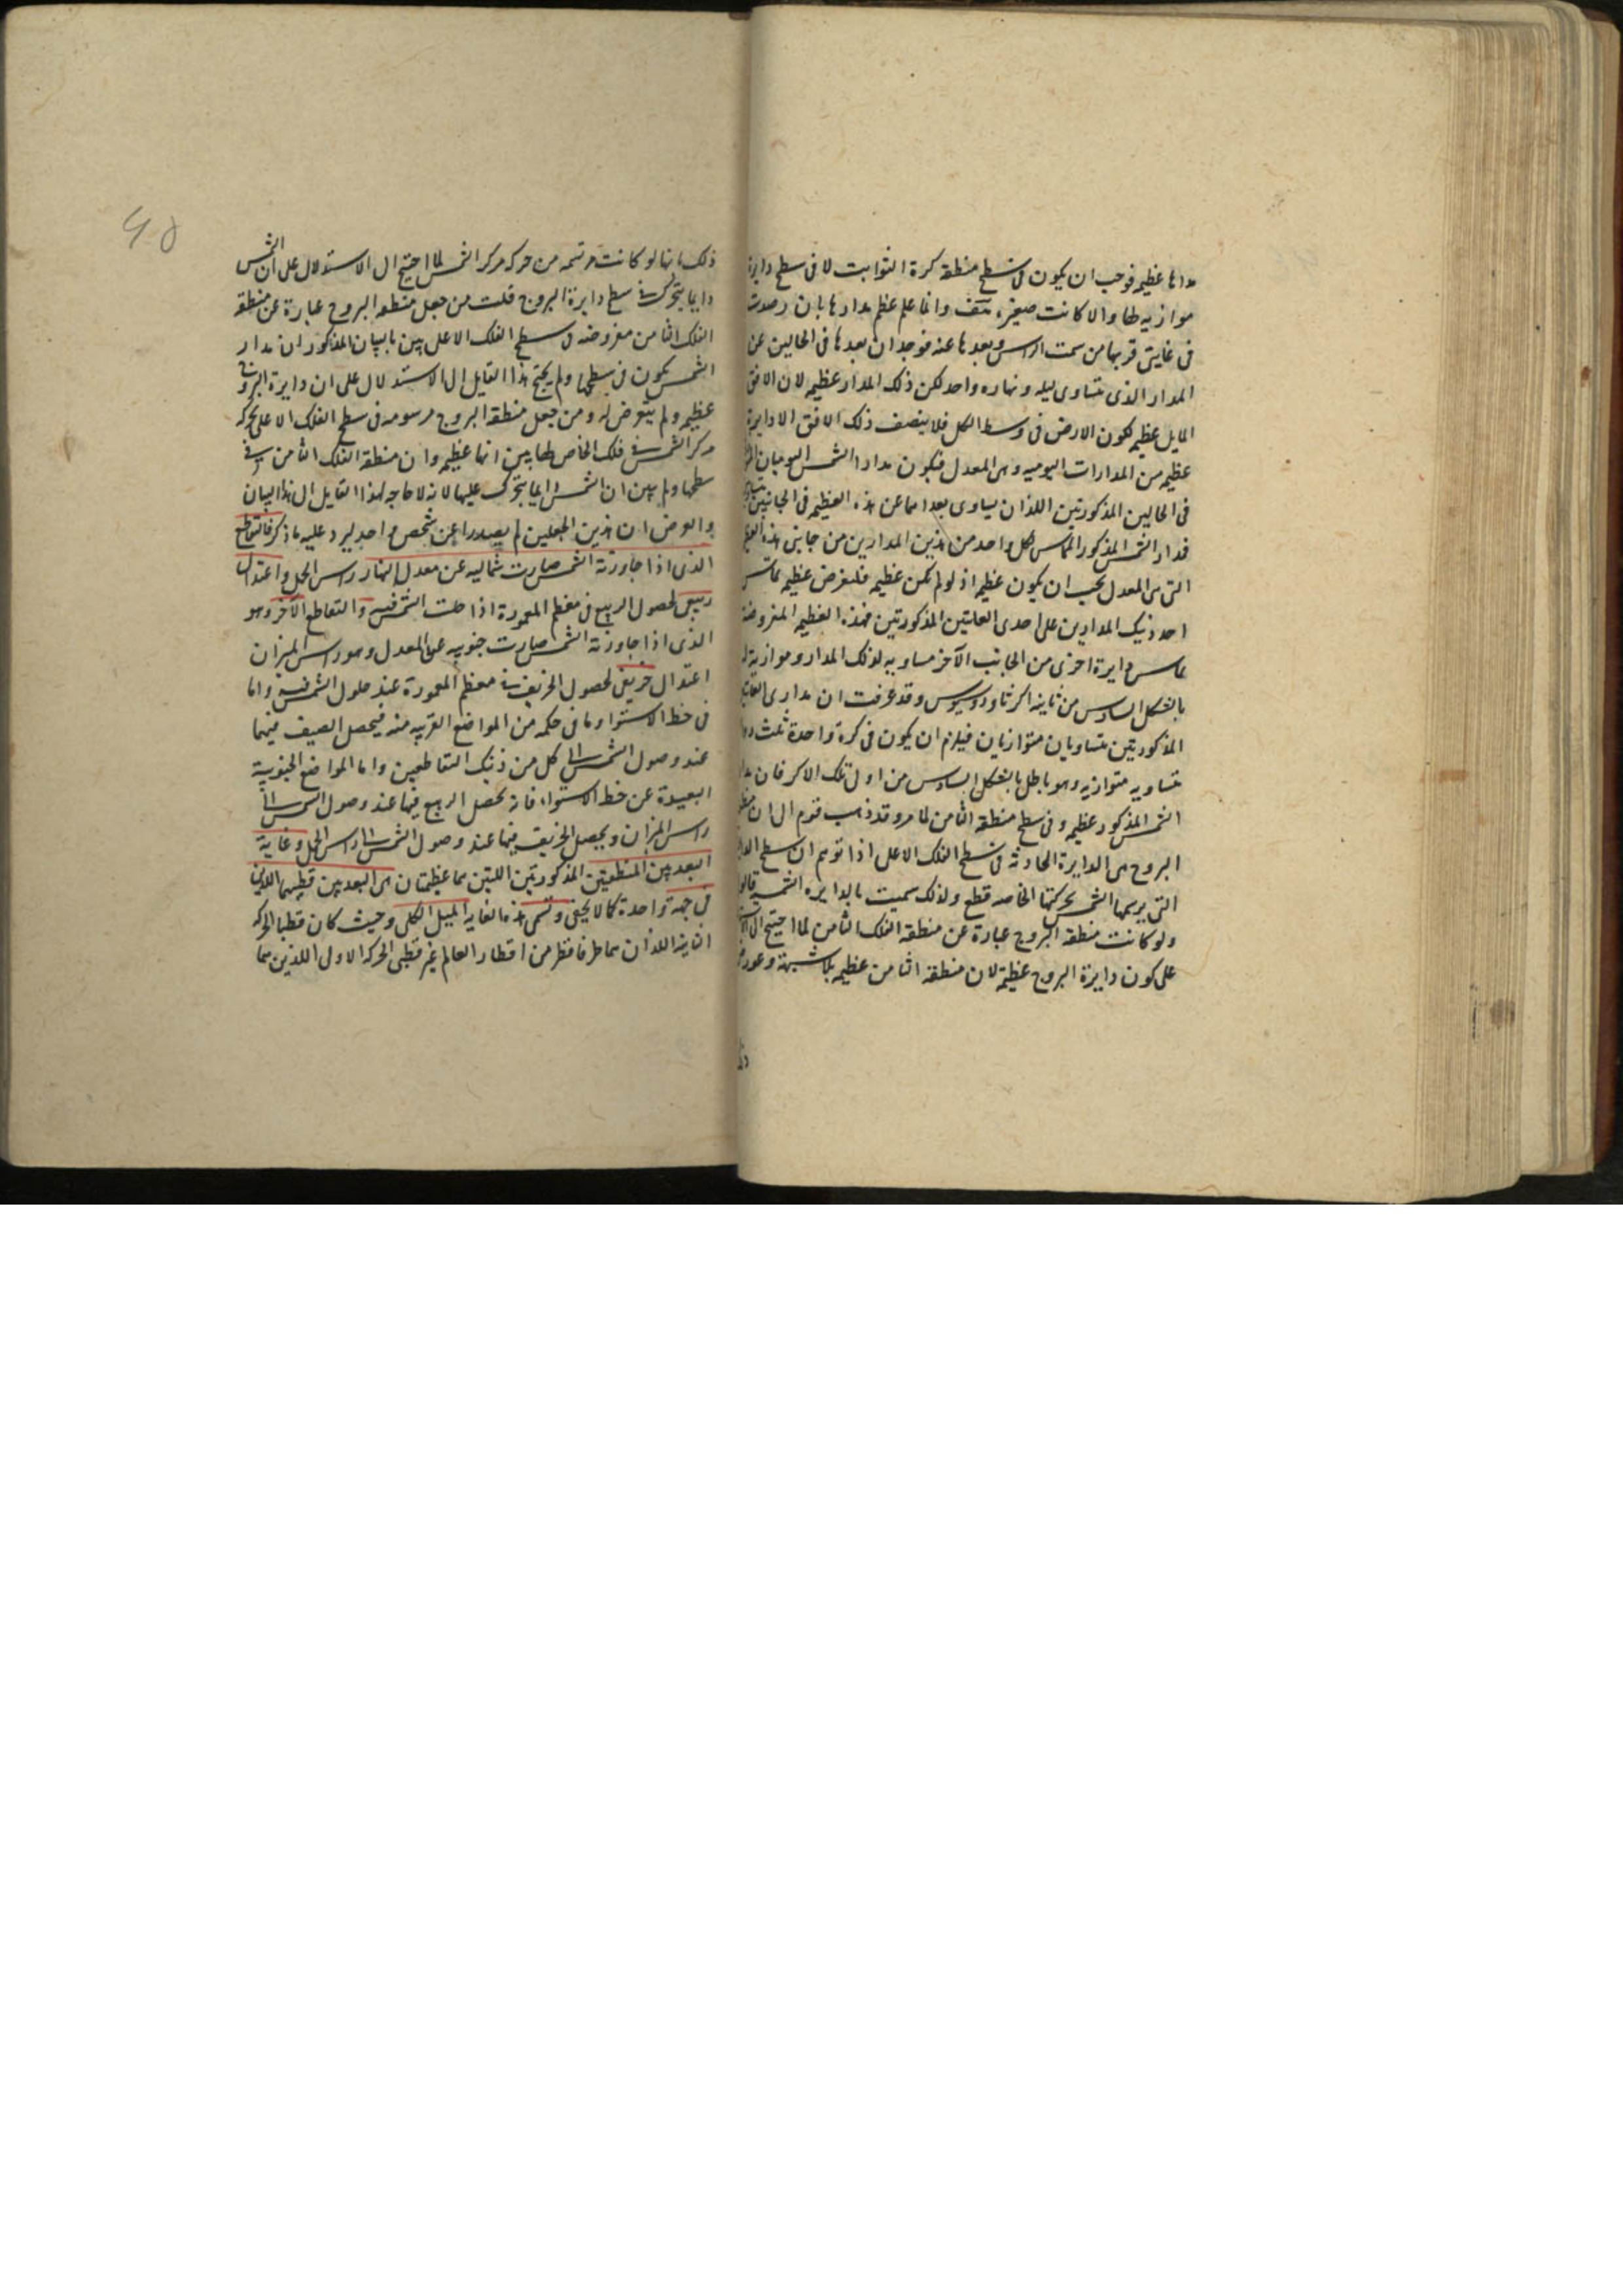 مدارها عظيمه فوجب ان يكون فى سطح منطقه كرة الثوابت لا فى سطح دايرة
موازيه لها والا كانت صغيرة هف وانما علم عظم مدارها بان رصدت
فى غايتى قربها من سمت الراس وبعدها عنه فوجد ان بعدها فى الحالين عن
المدار الذى يتساوى ليله ونهاره واحد لكن ذلك المدار عظيمه لان الافق
المايل عظيمه لكون الارض فى وسط الكل فلا ينصف ذلك الافق الا دايرة
عظيمه من المدارات اليوميه وهى المعدل فيكون مدارا الشمس اليوميان
فى الحالين المذكورتين اللذان يساوى بعداهما عن هذه العظيمه فى الجانبين
فمدار الشمس المذكور المماس لكل واحد من هذين المدارين من جانبى هذه
التى هى المعدل يجب ان يكون عظيمه اذ لو لم تكن عظيمه فلنفرض عظيمه تماس
احد ذينك المدارين على احدى الغايتين المذكورتين فهذه العظيمه المفروضة
تماس دايرة اخرى من الجانب الآخر مساويه لذلك المدار وموازية له
بالشكل السادس من ثانية اكر ثاوذوسيوس وقد عرفت ان مدارى
المذكورتين متساويان متوازيان فيلزم ان يكون فى كرة واحدة ثلث
متساويه متوازيه وهو باطل بالشكل السادس من اولى تلك الاكر فاذن
الشمس المذكور عظيمه وفى سطح منطقه الثامن لما مر وقد ذهب قوم الى ان
البروج هى الدايرة الحادثة فى سطح الفلك الاعلى اذا توهم ان سطح
التى يرسمها الشمس بحركتها الخاصه قطع ولذلك سميت بالدايره الشمسيه قالوا
ولو كانت منطقه البروج عبارة عن منطقه الفلك الثامن لما احتيج الى
على كون دايرة البروج عظيمة لان منطقه الثامن عظيمه بلا شبهة وعورض
ذلك
٤٥
ذلك بانها لو كانت مرتسمه من حركه مركز الشمس لما احتيج الى الاستدلال على ان الشمس
دايما يتحرك فى سطح دايرة البروج قلت من جعل منطقه البروج عبارة عن منطقه
الفلك الثامن مفروضه فى سطح الفلك الاعلى بين بالبيان المذكور ان مدار
الشمس يكون فى سطحها ولم يحتج هذا القايل الى الاستدلال على ان دايرة البروج
عظيمه ولم يتعرض له ومن جعل منطقه البروج مرسومه فى سطح الفلك الاعلى بحركه
مركز الشمس فى فلك الخاص لها بين انها عظيمه وان منطقه الفلك الثامن فى
سطحها ولم يبين ان الشمس دايما يتحرك عليها لانه لا حاجه لهذا القايل الى هذا البيان
والغرض ان هذين الجعلين لم يصدرا عن شخص واحد ليرد عليه ما ذكر فالتقاطع
الذى اذا جاوزته الشمس صارت شماليه عن معدل النهار راس الحمل واعتدال
ربيعى لحصول الربيع فى معظم المعمورة اذا حلت الشمس فيه والتقاطع الآخر وهو
الذى اذا جاوزته الشمس صارت جنوبيه عن المعدل وهو راس الميزان
اعتدال خريفى لحصول الخريف فى معظم المعمورة عند حلول الشمس فيه واما
فى خط الاستوا وما فى حكمه من المواضع القريبه منه فيحصل الصيف فيهما
عند وصول الشمس الى كل من ذينك التقاطعين واما المواضع الجنوبية
البعيدة عن خط الاستواء فانه يحصل الربيع فيها عند وصول الشمس الى
راس الميزان ويحصل الخريف فيها عند وصول الشمس الى راس الحمل وغاية
البعد بين المنطقتين المذكورتين اللتين هما عظيمتان هى البعد بين قطبيهما اللذين
فى جهة واحدة كما لا يخفى وتسمى هذه الغايه الميل الكلى وحيث كان قطبا الحركه
الثانيه اللذان هما طرفا قطر من اقطار العالم غير قطبى الحركه الاولى اللذين هما